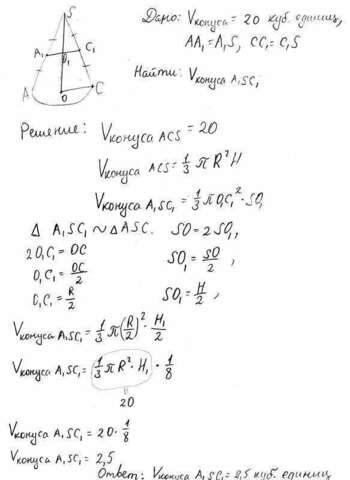 S
Дано: Vконуса = 20 куб. единиц,
AA₁ = A₁S, CC₁ = C₁S
A₁ O₁ C₁
Найти: Vконуса A₁SC₁
A O C
Решение: Vконуса ACS = 20
Vконуса ACS = 1/3 πR²H
Vконуса A₁SC₁ = 1/3 πO₁C₁² · SO₁
Δ A₁SC₁ ~ Δ ASC. SO = 2SO₁,
2O₁C₁ = OC SO₁ = SO/2,
O₁C₁ = OC/2
O₁C₁ = R/2 SO₁ = H/2,
Vконуса A₁SC₁ = 1/3 π(R/2)² · H₁/2
Vконуса A₁SC₁ = 1/3 πR² · H₁ · 1/8
"
20
Vконуса A₁SC₁ = 20 · 1/8
Vконуса A₁SC₁ = 2,5
Ответ: Vконуса A₁SC₁ = 2,5 куб. единиц